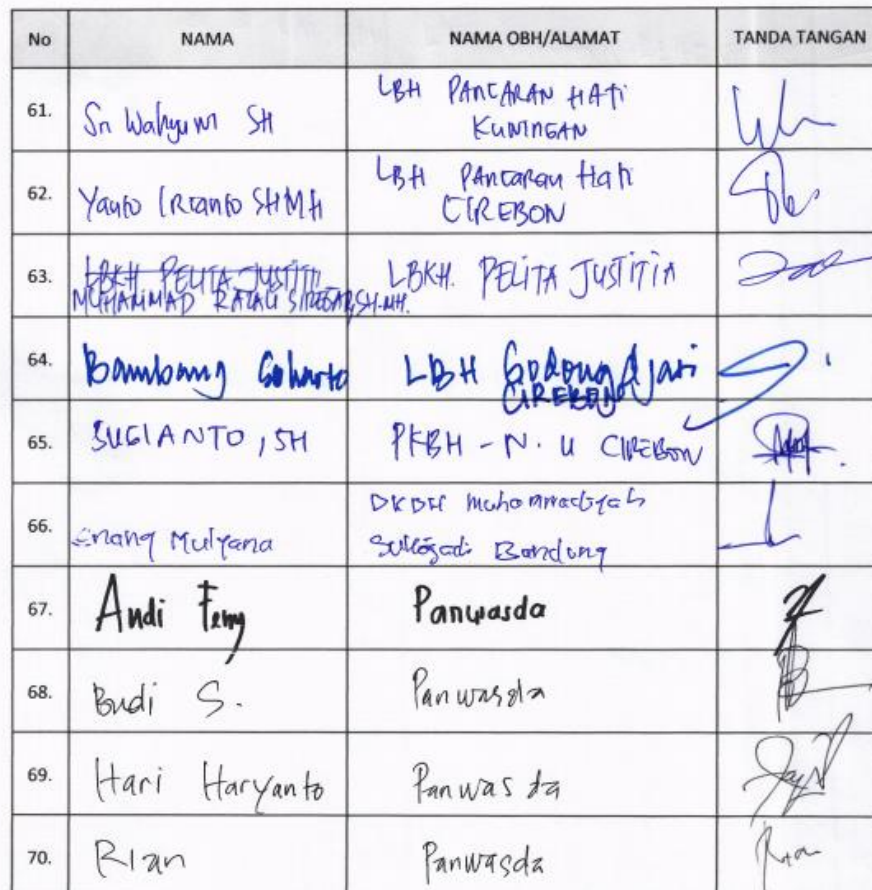 No NAMA NAMA OBH/ALAMAT TANDA TANGAN
61. Sri Wahyuni SH LBH PANCARAN HATI
KUNINGAN
62. Yanto Irianto SH MH LBH Pancaran Hati
CIREBON
63. LBKH PELITA JUSTITI LBKH. PELITA JUSTITIA
MUHAMMAD SIREGAR, SH.MH.
64. Bambang Soharto LBH Godong djati
CIREBON
65. SUGIANTO, SH PKBH - N. U CIREBON
66. Enang Mulyana Muhammadiyah
Bandung
67. Andi Ferry Panwasda
68. Budi S. Panwasda
69. Hari Haryanto Panwasda
70. Rian Panwasda Rian